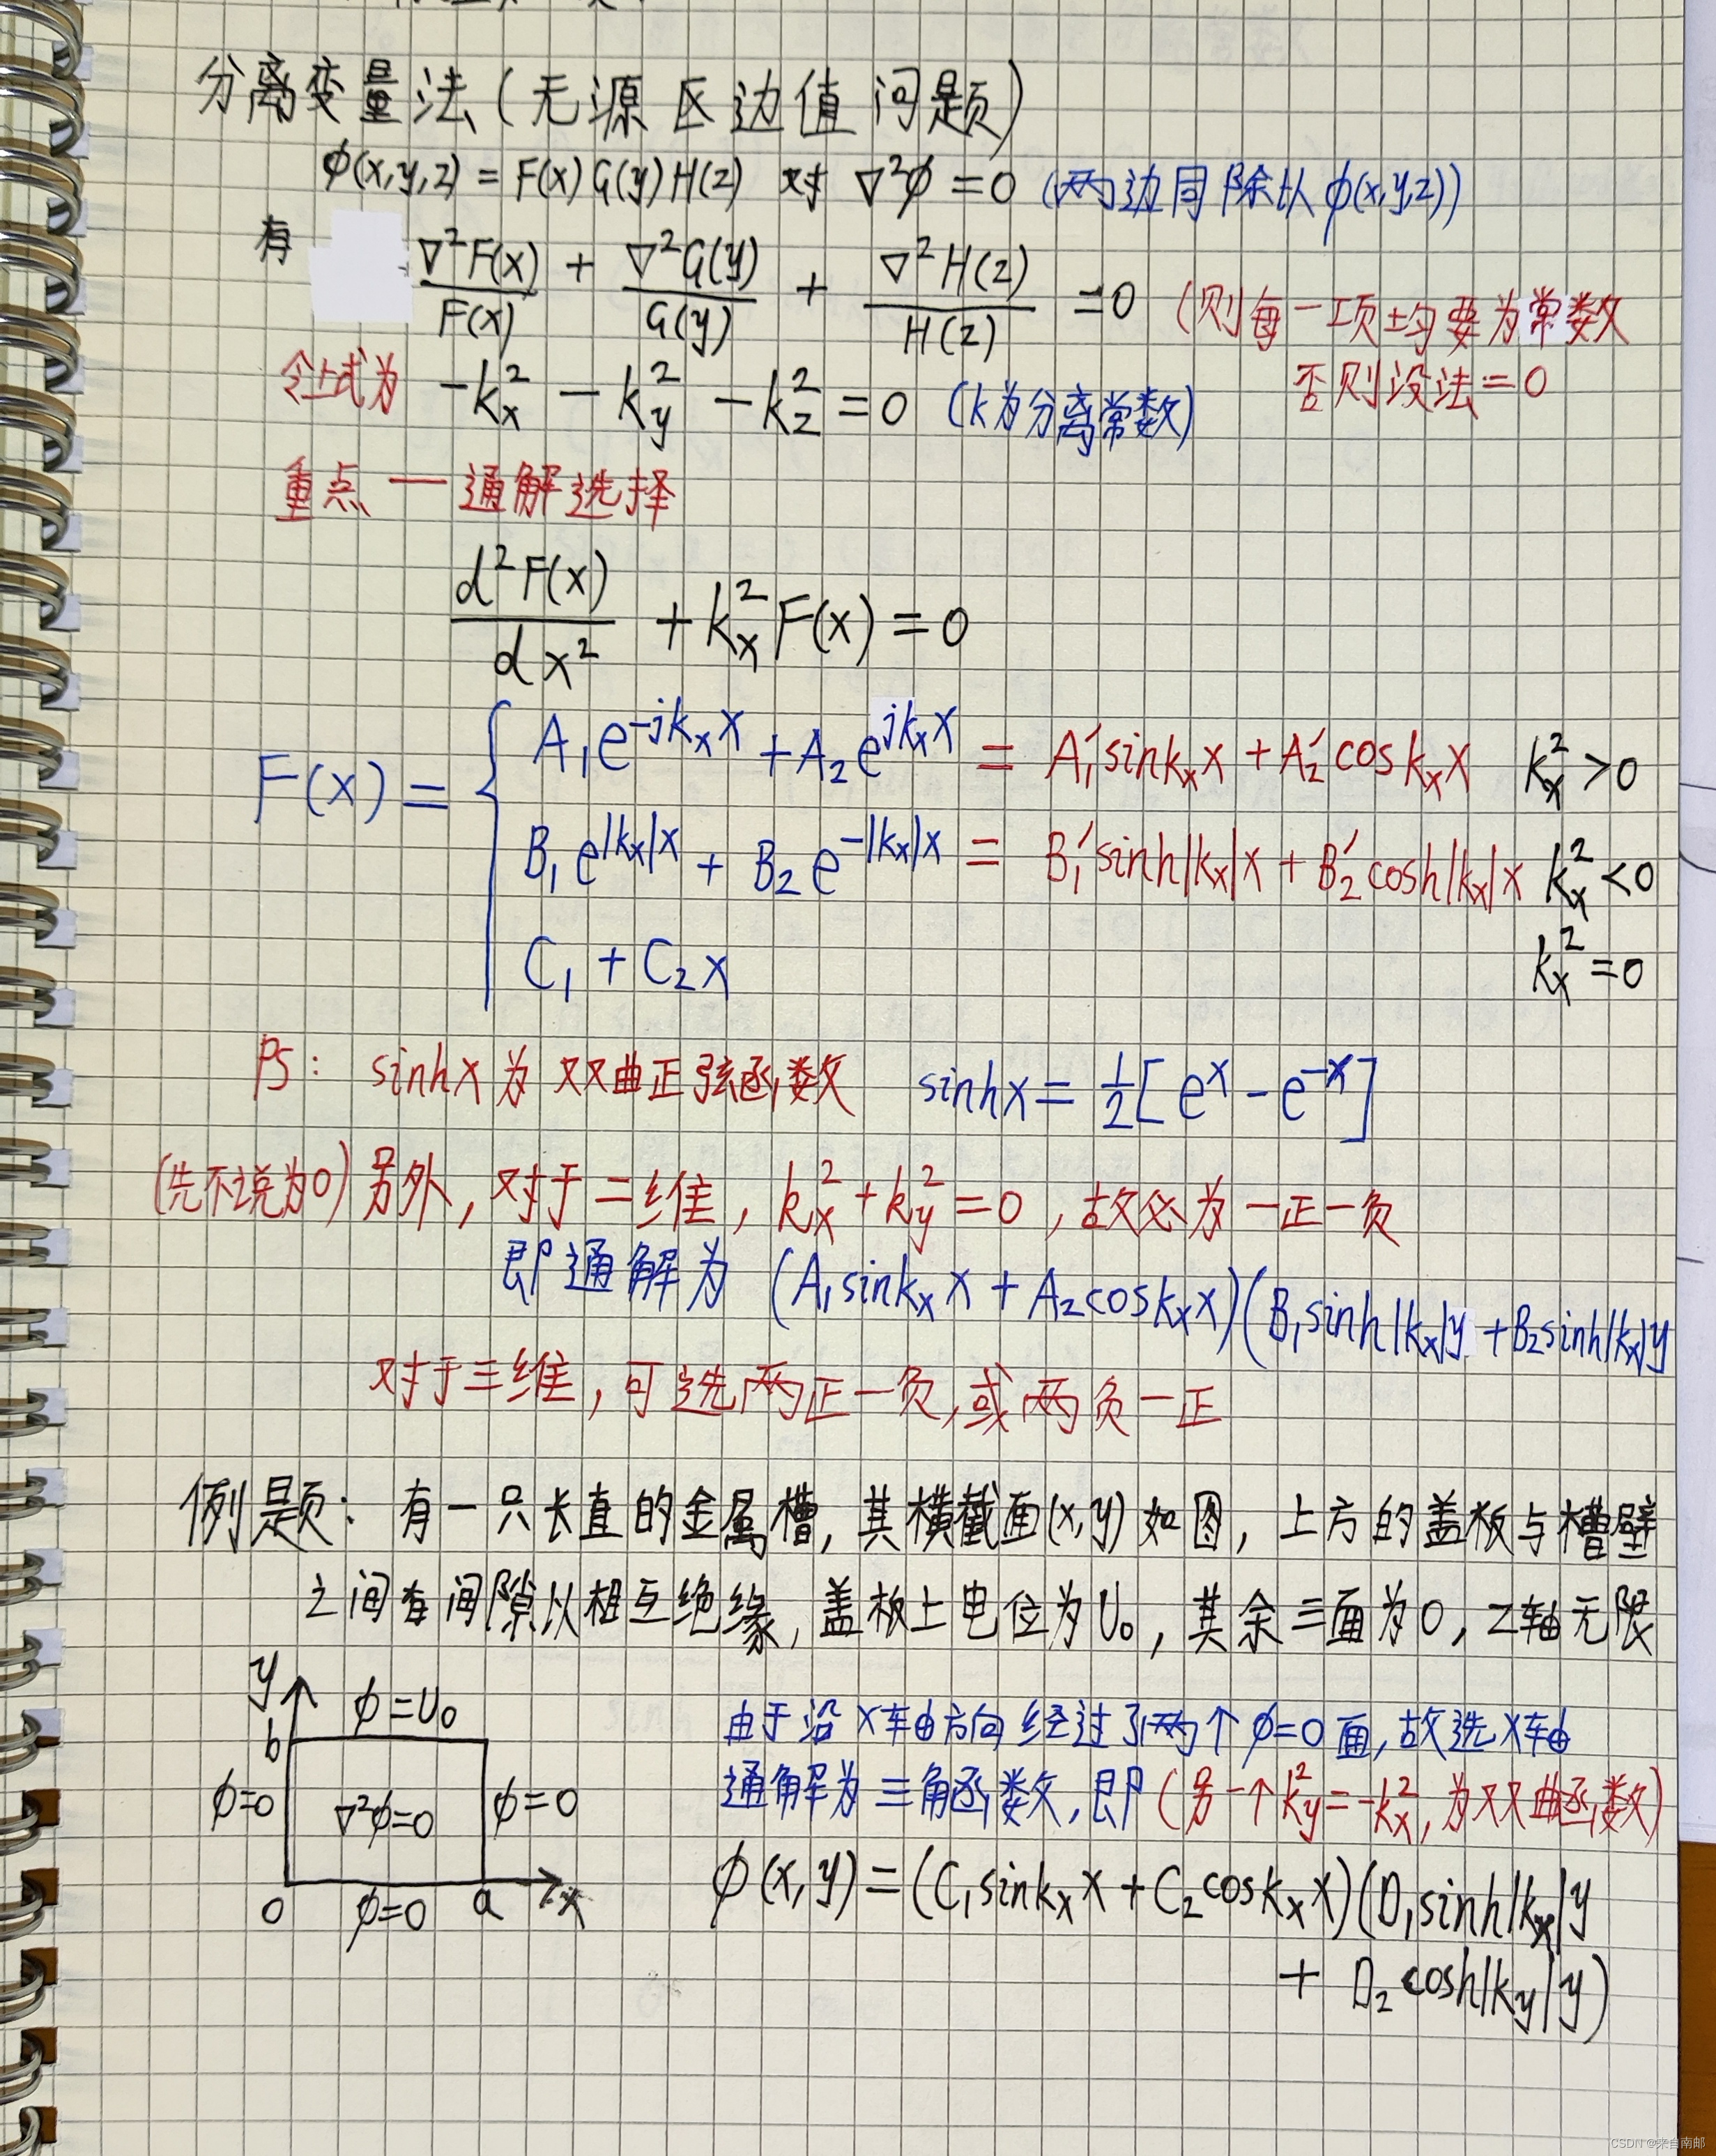 分离变量法(无源区边值问题)
ϕ(x,y,z) = F(x)G(y)H(z) 对 ∇²ϕ = 0 (两边同除以ϕ(x,y,z))
有 ∇²F(x)/F(x) + ∇²G(y)/G(y) + ∇²H(z)/H(z) = 0 (则每一项均要为常数
否则没法=0
令上式为 -kx² - ky² - kz² = 0 (k为分离常数)
重点一通解选择
d²F(x)/dx² + kx²F(x) = 0
F(x) = { A₁e^(-jkxx) + A₂e^(jkxx) = A₁'sinkxx + A₂'coskxx kx²>0
B₁e^(|kx|x) + B₂e^(-|kx|x) = B₁'sinh|kx|x + B₂'cosh|kx|x kx²<0
C₁ + C₂x kx²=0
PS: sinhx为双曲正弦函数 sinhx = 1/2[e^x - e^(-x)]
(先不说为0)另外,对于二维,kx²+ky²=0,故必为一正一负
即通解为 (A₁sinkxx + A₂coskxx)(B₁sinh|kx|y + B₂sinh|kx|y
对于三维,可选两正一负,或两负一正
例题: 有一只长直的金属槽,其横截面(x,y)如图,上方的盖板与槽壁
之间有间隙以相互绝缘,盖板上电位为U₀,其余三面为0,z轴无限
y
ϕ=U₀
b
ϕ=0
∇²ϕ=0
ϕ=0
0
ϕ=0
a
x
由于沿x轴方向经过了两个ϕ=0面,故选x轴
通解为三角函数,即(另一个ky²=-kx²,为双曲函数)
ϕ(x,y) = (C₁sinkxx + C₂coskxx)(D₁sinh|kx|y
+ D₂cosh|ky|y)
CSDN @来自南邮